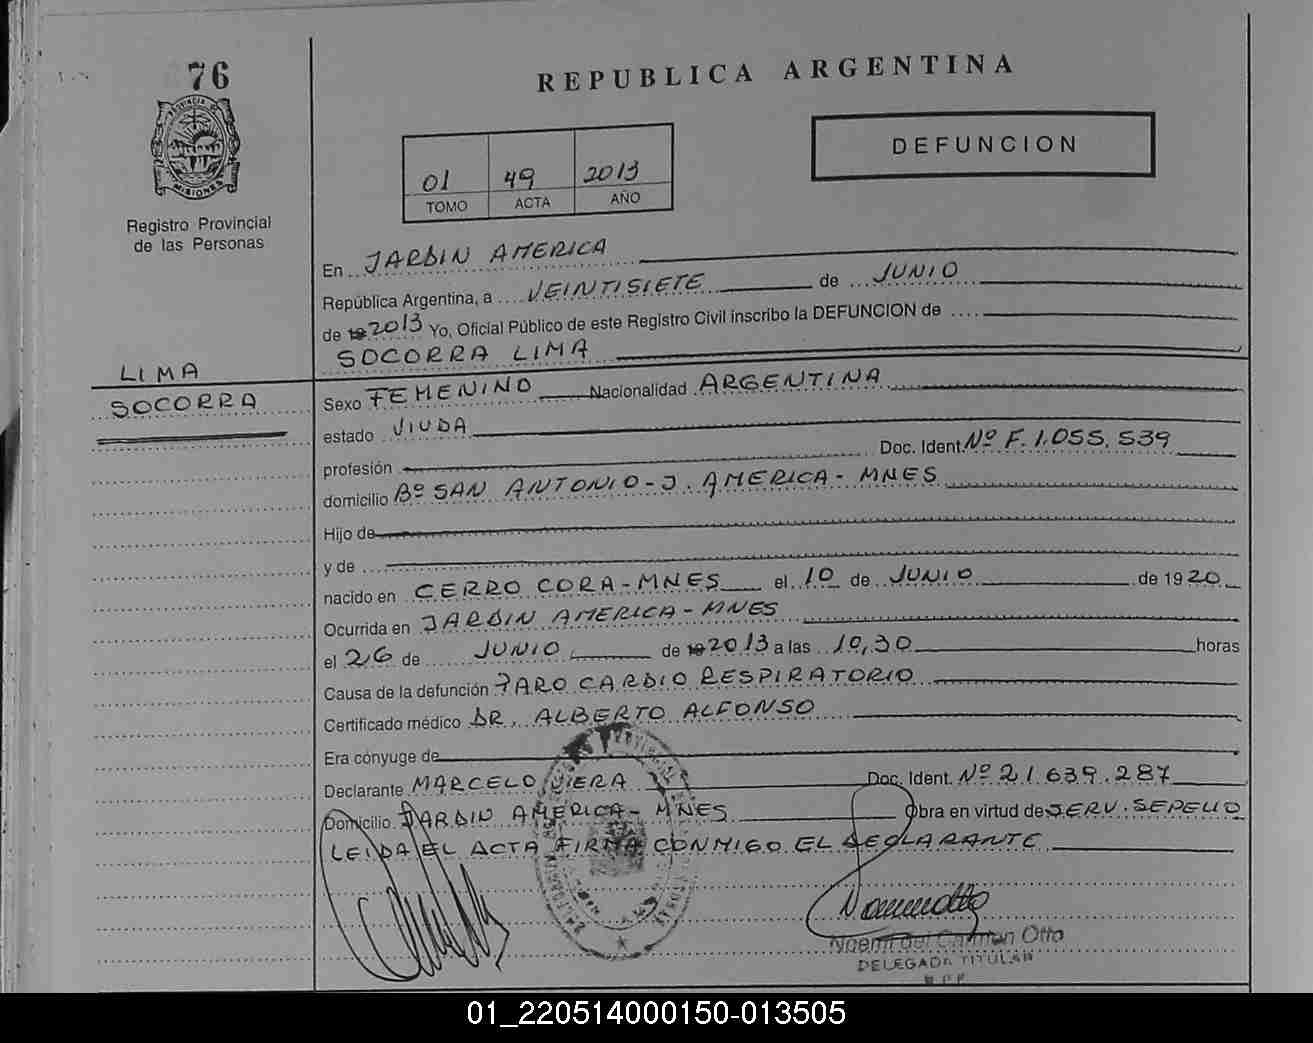 76
REPUBLICA ARGENTINA
PROVINCIA DE
MISIONES
Registro Provincial
de las Personas
01 49 2013
TOMO ACTA AÑO
DEFUNCION
En JARDIN AMERICA
República Argentina, a VEINTISIETE de JUNIO
de 19 2013 Yo, Oficial Público de este Registro Civil inscribo la DEFUNCION de
SOCORRA LIMA
LIMA
SOCORRA
Sexo FEMENINO Nacionalidad ARGENTINA
estado VIUDA
profesión Doc. Ident. Nº F. 1.055.539
domicilio Bº SAN ANTONIO - J. AMERICA - MNES
Hijo de
y de
nacido en CERRO CORA - MNES el 10 de JUNIO de 1920
Ocurrida en JARDIN AMERICA - MNES
el 26 de JUNIO de 19 2013 a las 10,30 horas
Causa de la defunción PARO CARDIO RESPIRATORIO
Certificado médico DR. ALBERTO ALFONSO
Era cónyuge de
Declarante MARCELO VIERA Doc. Ident. Nº 21.639.287
Domicilio JARDIN AMERICA - MNES Obra en virtud de SERV. SEPELIO
LEIDA EL ACTA FIRMA CONMIGO EL DECLARANTE
Noemi del Carmen Otto
DELEGADA TITULAR
01_220514000150-013505